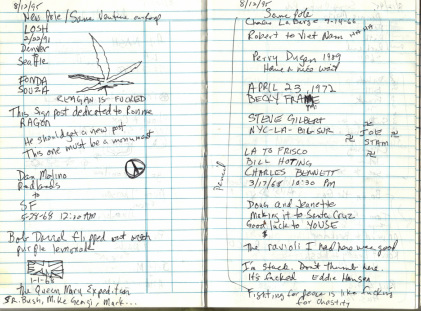 8/12/95
New Pole / Same Venture
LOSH
2/02/91
Denver
to
Seattle
FONDA
SOUZA
REAGAN IS FUCKED
This Sign post dedicated to Ronnie
RAGON
He should get a new pot
This one must be a monument
Dan Molino
Badlands
to
SF
5-28-68 12:20 AM
Bob David flipped out with
purple lemonade
1-1-68
The Queen Mary Expedition
SR. Bush, Mike Gengi, Mark...
8/12/95
Same Pole
Charlie LaBarge 9-14-68
Robert to Viet Nam HA HA
Perry Dugan 1989
Have a nice wait
APRIL 23, 1972
BECKY
STEVE GILBERT
NYC-LA-BIG SUR
JOE
STAM
LA TO FRISCO
BILL HOTING
CHARLES BENNETT
3/17/68 10:30 PM
Doug and Jeanette
Making it to Santa Cruz
Good luck to YOUSE
$
The ravioli I had here was good
I'm stuck. Don't thumb here.
It's fucked Eddie Hansen
Fighting for peace is like fuckin's
for chastity
Pencil